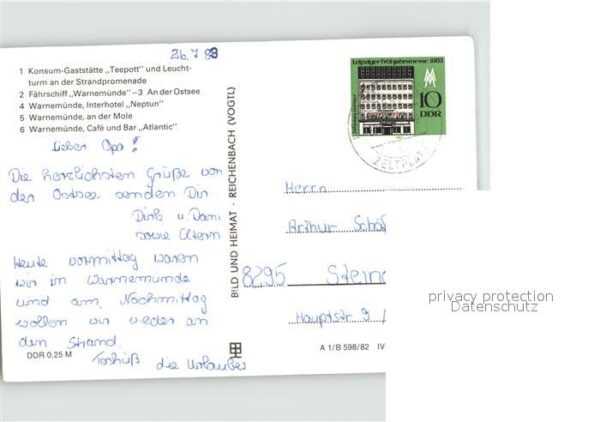 26.7.83
1 Konsum-Gaststätte „Teepott" und Leucht-
turm an der Strandpromenade
2 Fährschiff „Warnemünde" –3 An der Ostsee
4 Warnemünde, Interhotel „Neptun"
5 Warnemünde, an der Mole
6 Warnemünde, Café und Bar „Atlantic"
Lieber Opa!
Die herzlichsten Grüße von
der Ostsee senden Dir
Dirk u. Dani
sowie Eltern
Heute vormittag waren
wir in Warnemünde
und am Nachmittag
wollen wir wieder an
den Strand.
Tschüß die Urlauber
DDR 0,25 M
BILD UND HEIMAT · REICHENBACH (VOGTL)
Leipziger Frühjahrsmesse 1983
10
DDR
ZELTPLATZ
Herrn
Arthur Schöf
8295 Steina
Hauptstr 9
A 1/B 598/82 IV
privacy protection
Datenschutz